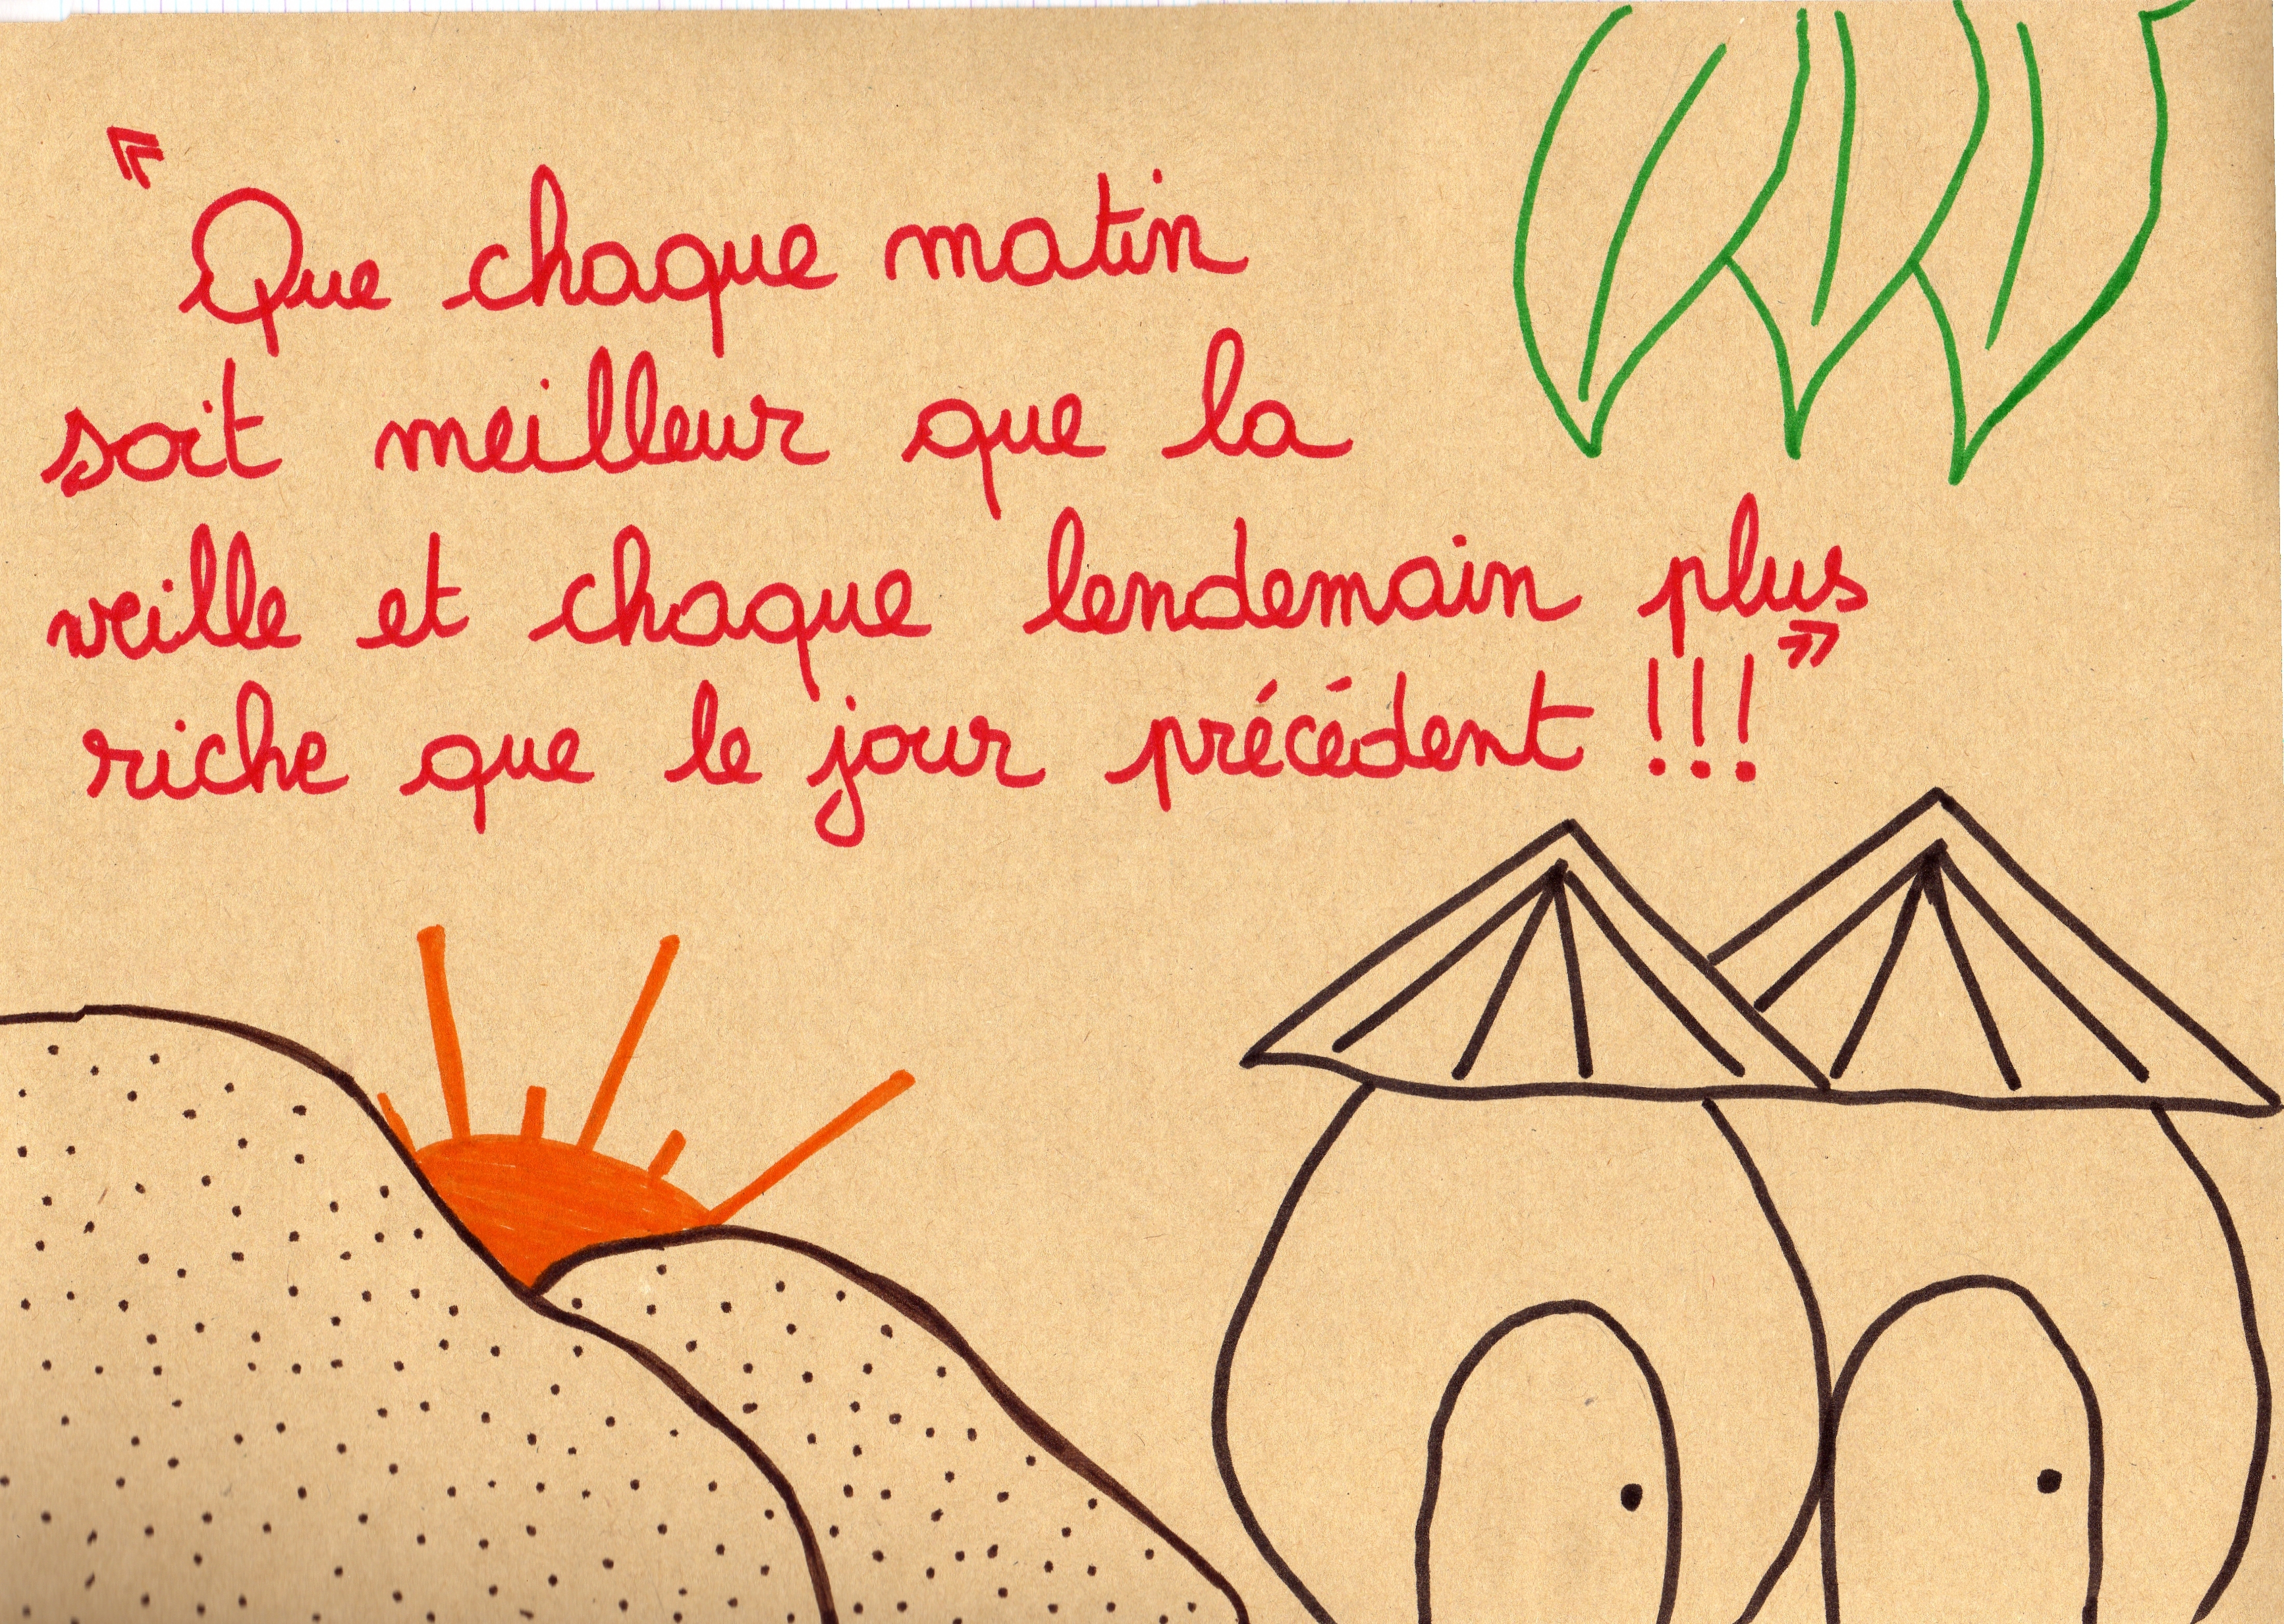 « Que chaque matin
soit meilleur que la
veille et chaque lendemain plus
riche que le jour précédent !!! »